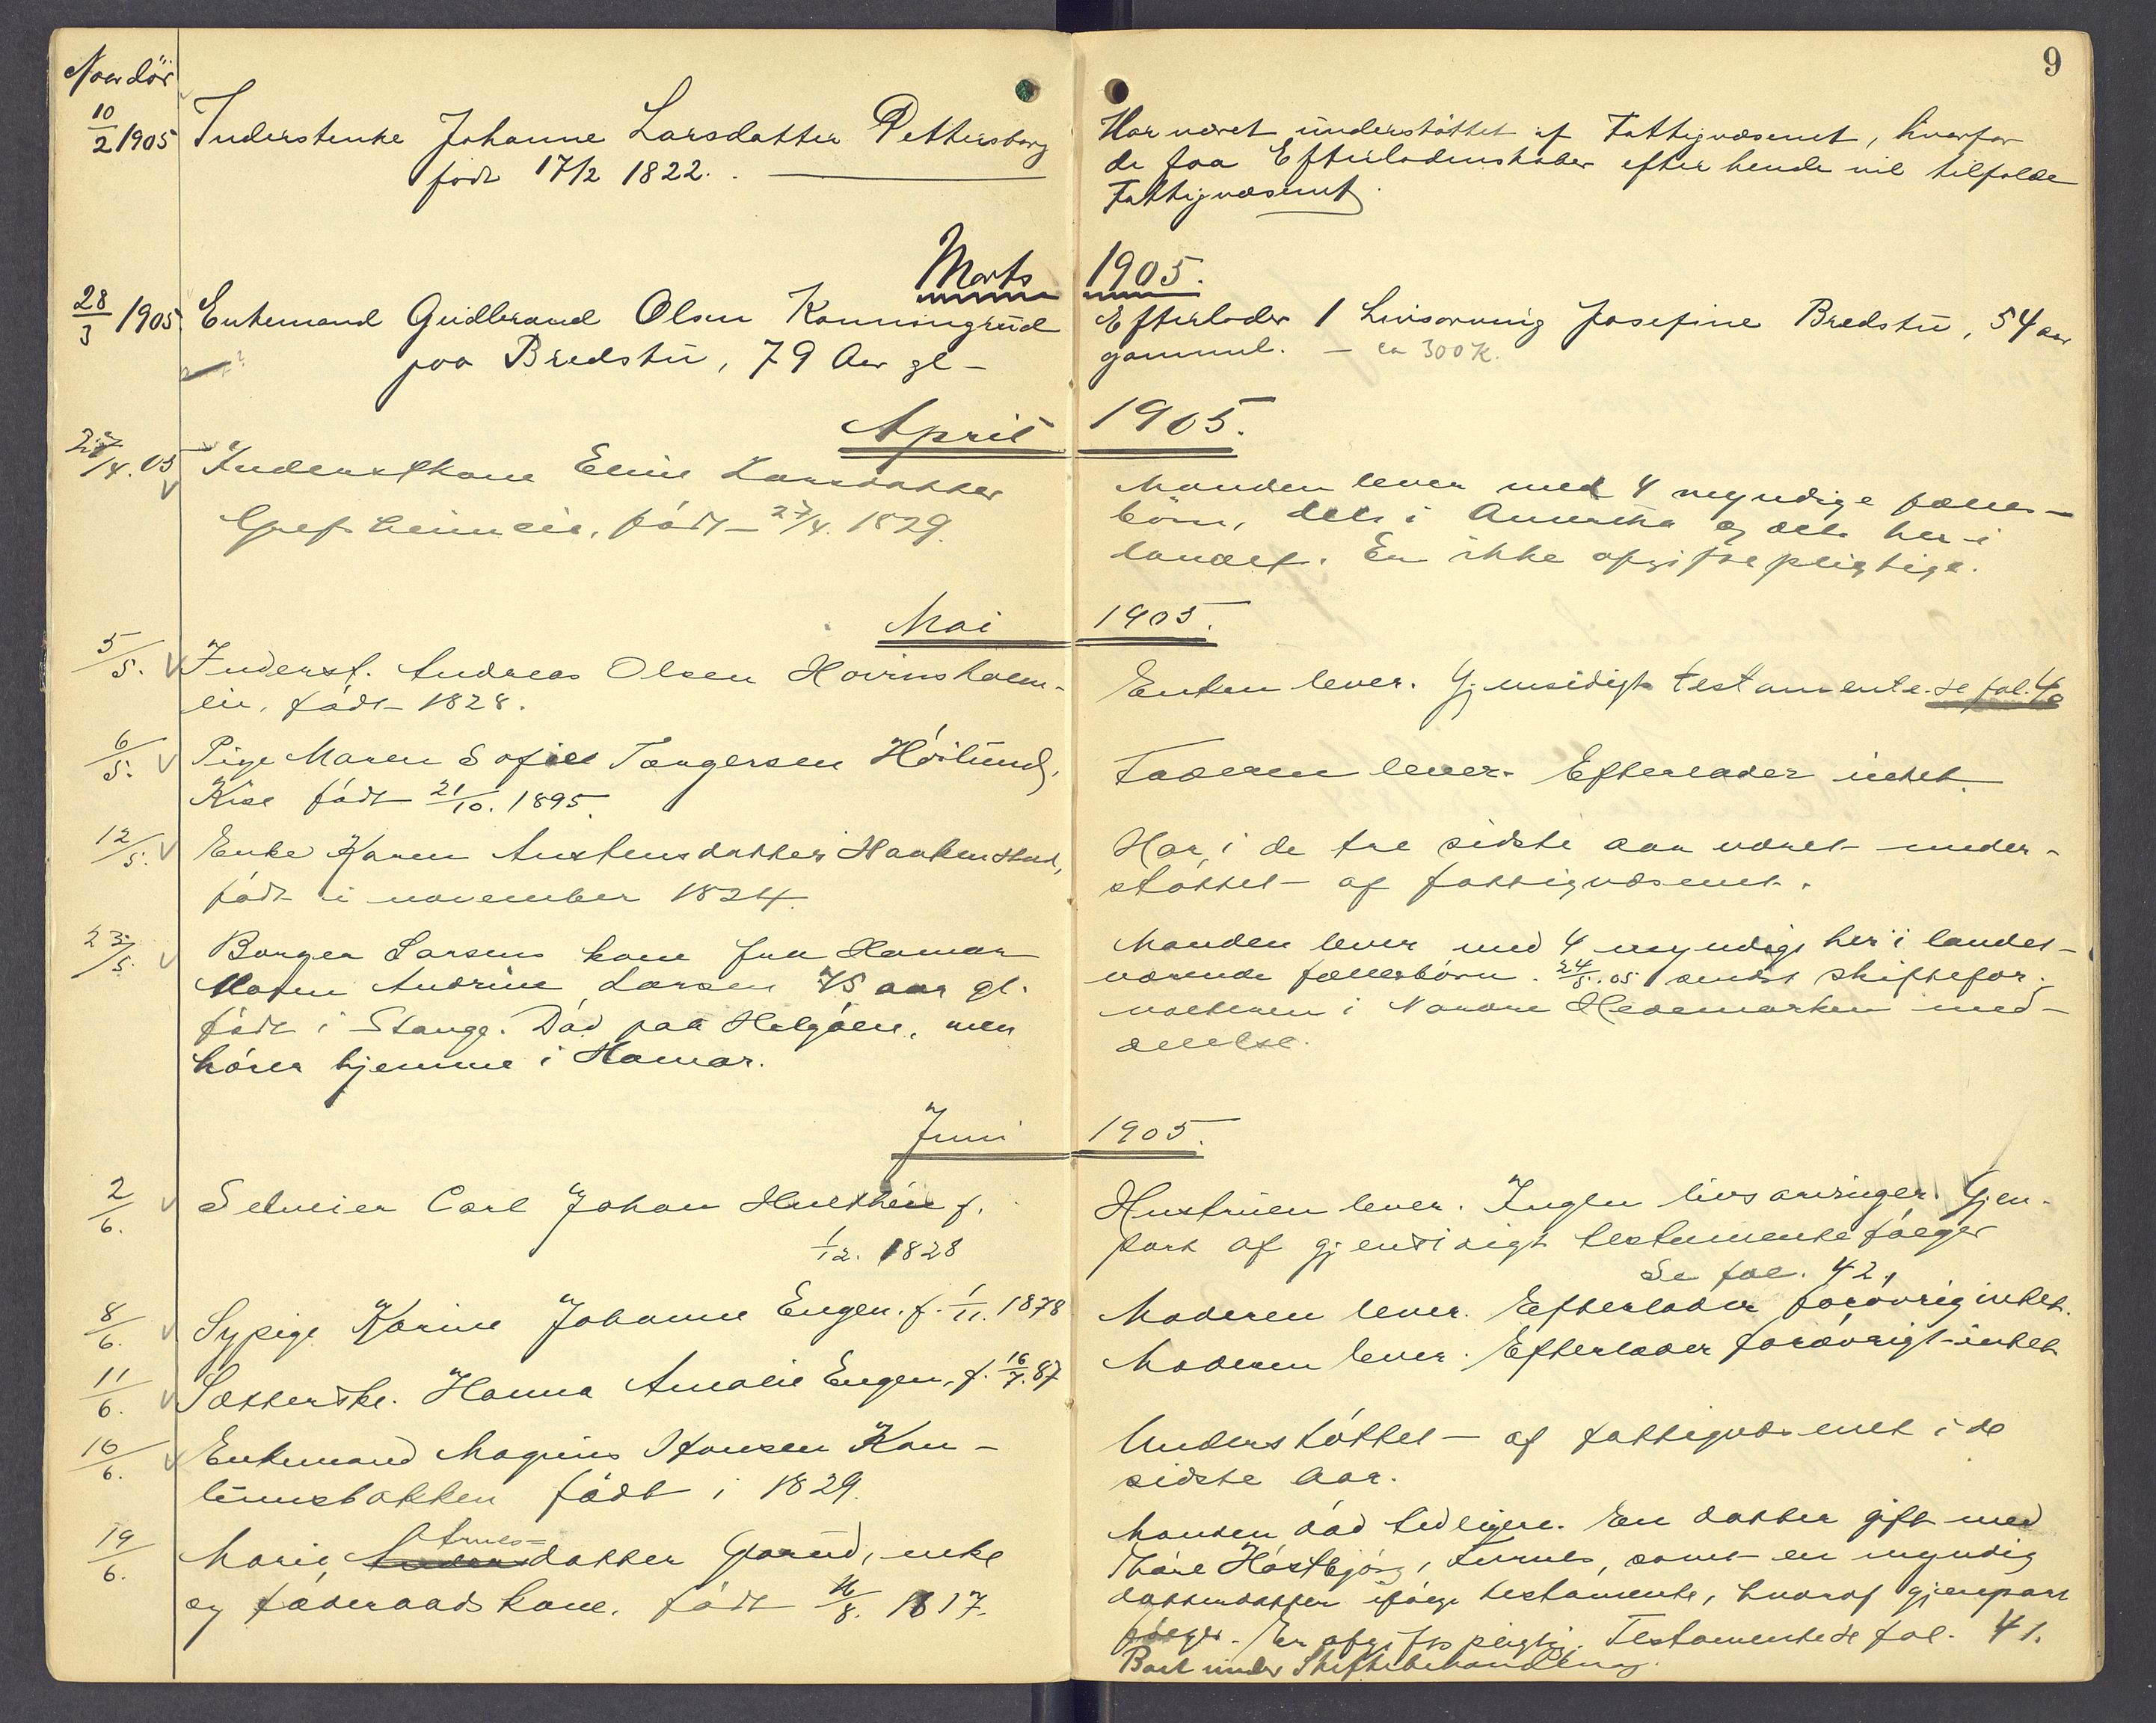 9
Naar død
10/2 1905 Inderstenke Johanne Larsdatter Pettersborg
født 17/2 1822.
Har været understøttet af Fattigvæsenet, hvorfor
de faa Efterladenskaber efter hende vil tilfalde
Fattigvæsenet.
Marts 1905.
28/3 1905 Enkemand Gudbrand Olsen Konningrud
paa Bredstu, 79 Aar gl -
Efterlader 1 Livsarving Josefine Bredstu, 54 aar
gammel. - ca 300 K.
April 1905.
27/4. 05 Inderstkone Eline Larsdatter
Grefsheimeie, født 27/4. 1829.
Manden lever med 4 myndige fælles-
børn, dels i Amerika og dels her i
landet. Er ikke afgiftspligtige.
Mai 1905.
5/5. Inderst. Andreas Olsen Hovinsholm-
eie, født 1828.
Enken lever. Gjensidigt testamente. se fol. 40
6/5. Pige Maren Sofie Torgersen Høilund,
Kise født 21/10. 1895.
Faderen lever. Efterlader intet.
12/5. Enke Karen Austensdatter Haakenstad,
født i november 1824.
Har i de tre sidste aar været under-
støttet af fattigvæsenet.
23/5. Borger Larsens kone fra Hamar
Maren Andrine Larsen 75 aar gl.
født i Stange. Død paa Helgøen, men
hører hjemme i Hamar.
Manden lever med 4 myndige her i landet
værende fællesbørn. 24/5. 05 sendt skiftefor-
valteren i Nordre Hedemarken med-
delelse.
Juni 1905.
2/6. Selveier Carl Johan Hulthin f.
1/12. 1828
Hustruen lever. Ingen livsarvinger. Gjen-
part af gjensidigt testamente følger
Se fol. 42.
8/6. Sypige Karine Johanne Engen. f. 1/11. 1878
Moderen lever. Efterlader forøvrig intet.
11/6. Sætterske. Hanna Amalie Engen, f. 16/7. 87
Moderen lever. Efterlader forøvrigt intet
16/6. Enkemand Magnus Hansen Kau-
lumsbakken født i 1829.
Understøttet af fattigvæsenet i de
sidste Aar.
19/6. Marie Arnes=
datter Garud, enke
og føderaadskone. født 16/8. 1817.
Manden død tidligere. En datter gift med
Thore Høstbjørg, Furnes, samt en myndig
datterdatter ifølge testamente, hvoraf gjenpart
følger. Er afgiftspligtig. Testamentet se fol. 41.
Boet under Skiftebehandling.